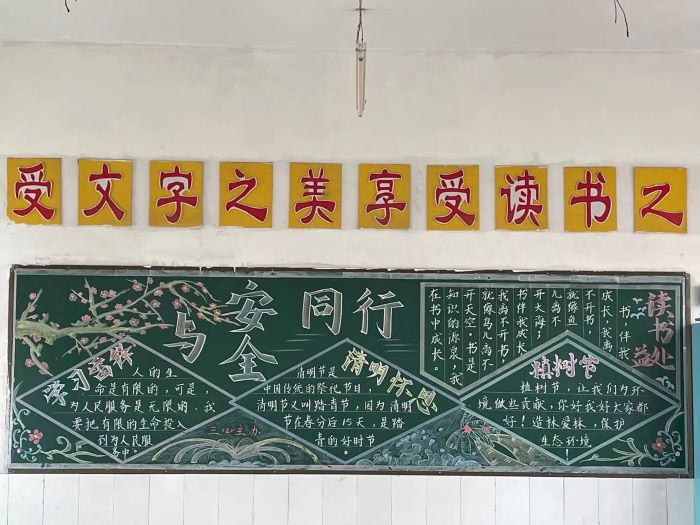 受文字之美享受读书之
与安全同行
学习雷锋
人的生
命是有限的,可是,
为人民服务是无限的,我
要把有限的生命投入
到为人民服
务中。
主办
清明怀
清明节是
中国传统的祭祀节日,
清明节又叫踏青节,因为清明
节在春分后15天,是踏
青的好时节。
读书益处
书,伴我
成长,我离
不开书,
就像鱼
儿离不
开大海;
书伴我成长,
我离不开书,
就像鸟儿离不
开天空。书是
知识的源泉,我
在书中成长。
植树节
植树节,让我们为环
境做些贡献,你好我好大家都
好!造林爱林,保护
生态环境!